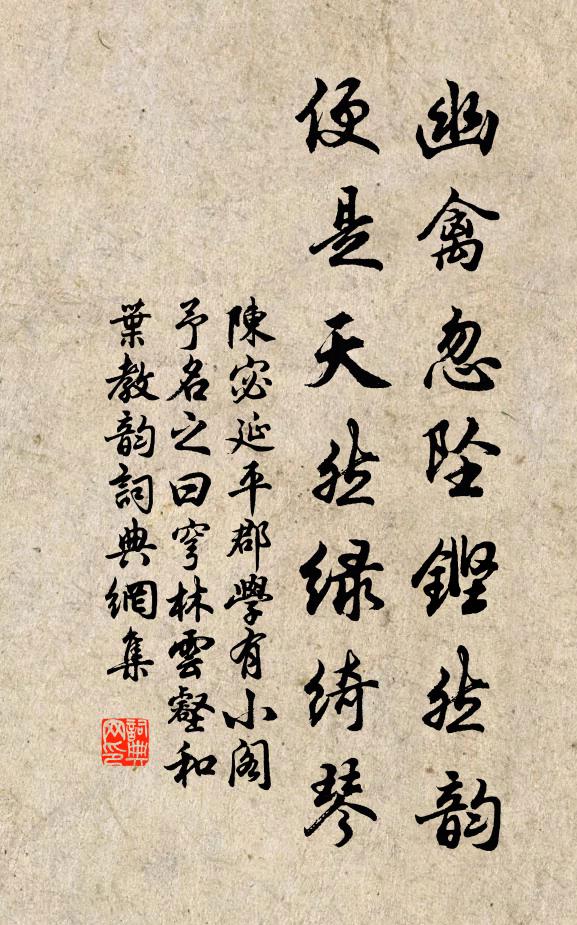 幽禽忽坠鏗然韵
便是天然绿绮琴
陳宓延平郡學有小阁
予名之曰穹林雲壑和
葉教韵詞典網集
詞典网印